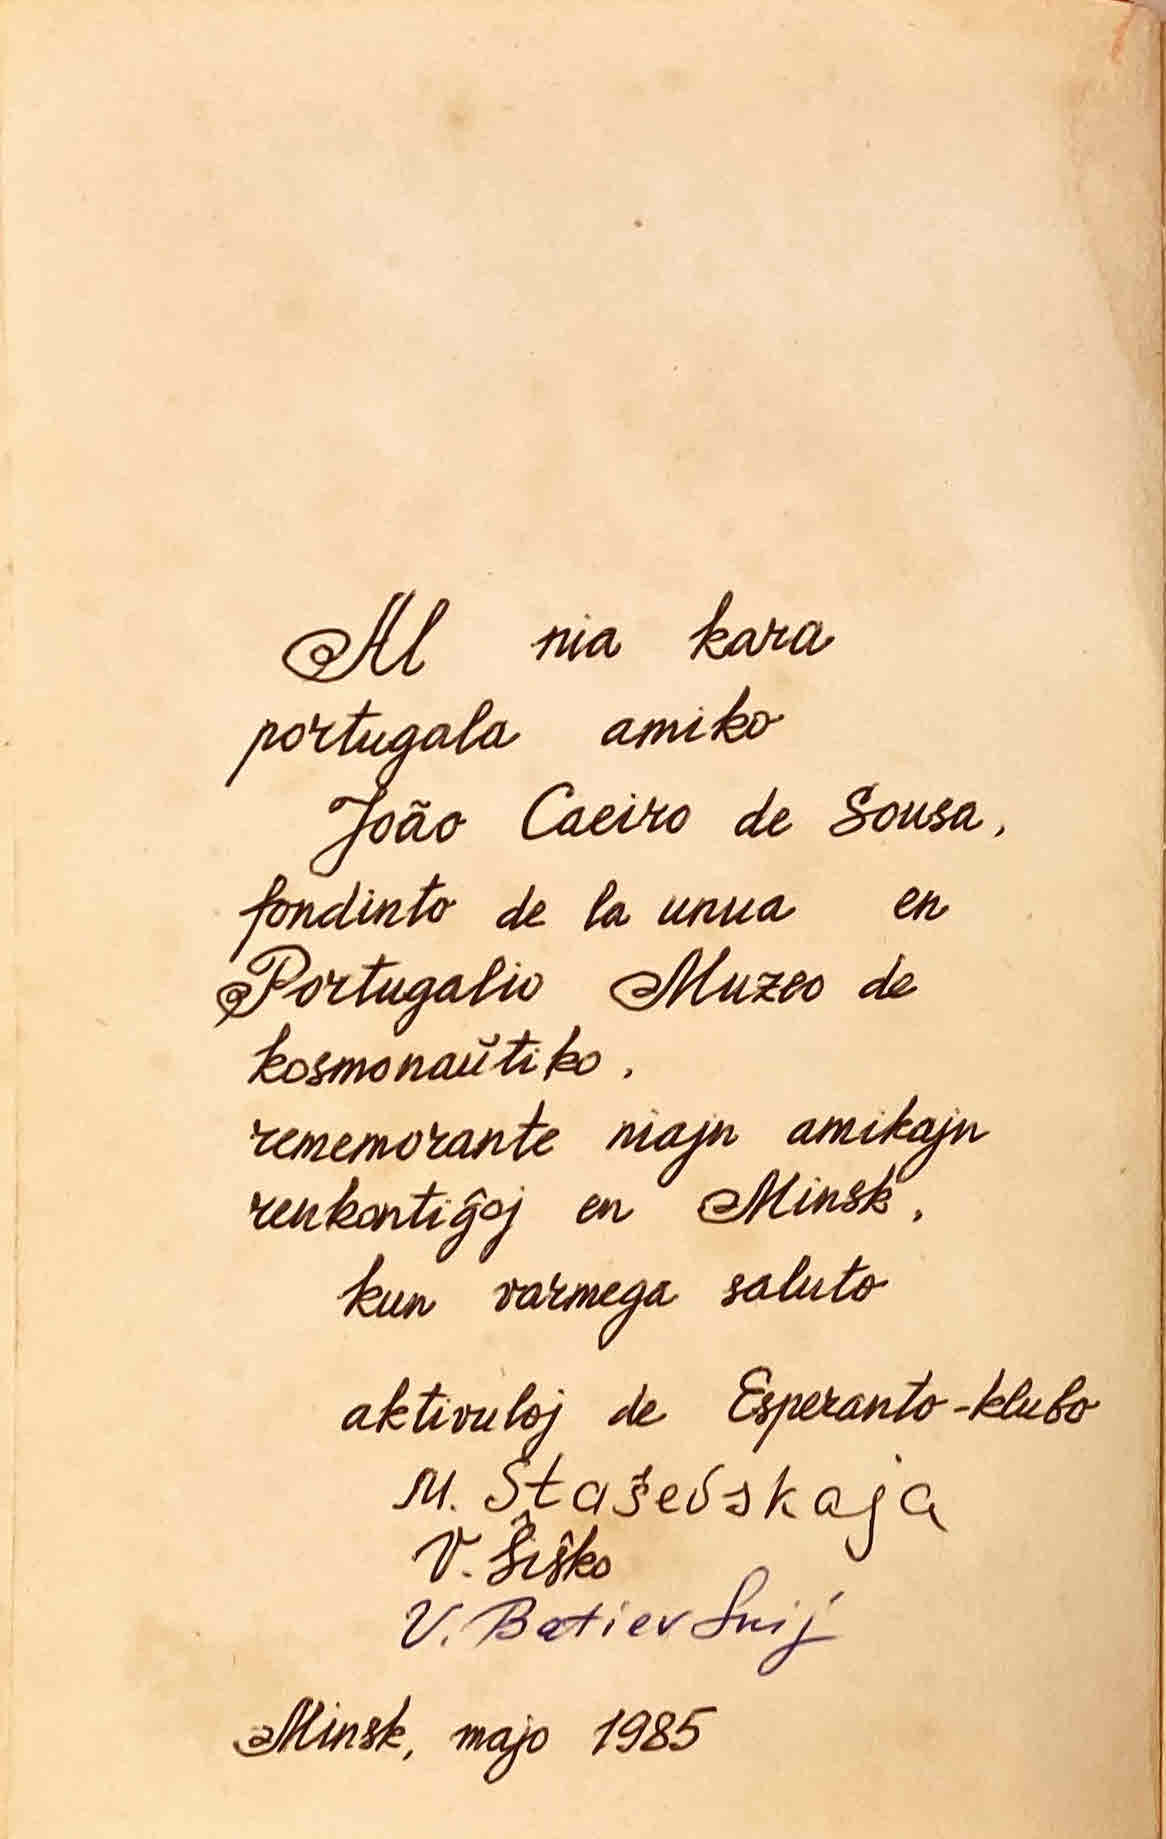 Al nia kara
portugala amiko
João Caeiro de Sousa,
fondinto de la unua en
Portugalio Muzeo de
kosmonaŭtiko,
rememorante niajn amikajn
renkontiĝoj en Minsk,
kun varmega saluto
aktivuloj de Esperanto-klubo
M. Staŝevskaja
V. Ŝiŝko
V.
Minsk, majo 1985